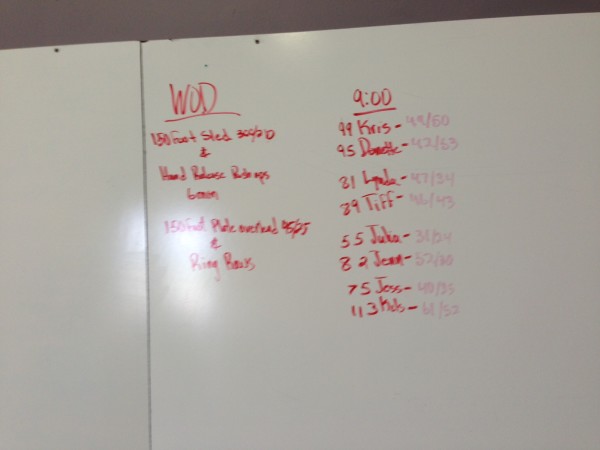 WOD
150 Foot Sled 300/210
&
Hand Release Pushups
6min
150 Foot Plate overhead 45/25
&
Ring Rows
9:00
99 Kris - 49/50
95 Danette - 42/53
81 Lynda - 47/34
89 Tiff - 46/43
55 Julia - 31/24
82 Jenn - 52/30
75 Jess - 40/35
113 - 61/52